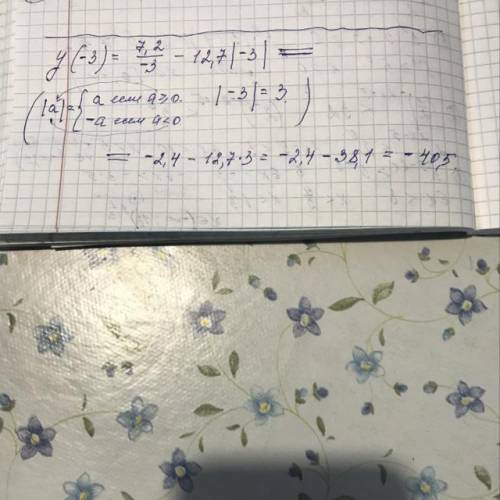 y(-3) = 7,2/-3 - 12,7|-3| =
(|a| = { a если a ≥ 0. |-3| = 3. )
-a если a < 0
= -2,4 - 12,7·3 = -2,4 - 38,1 = -40,5.